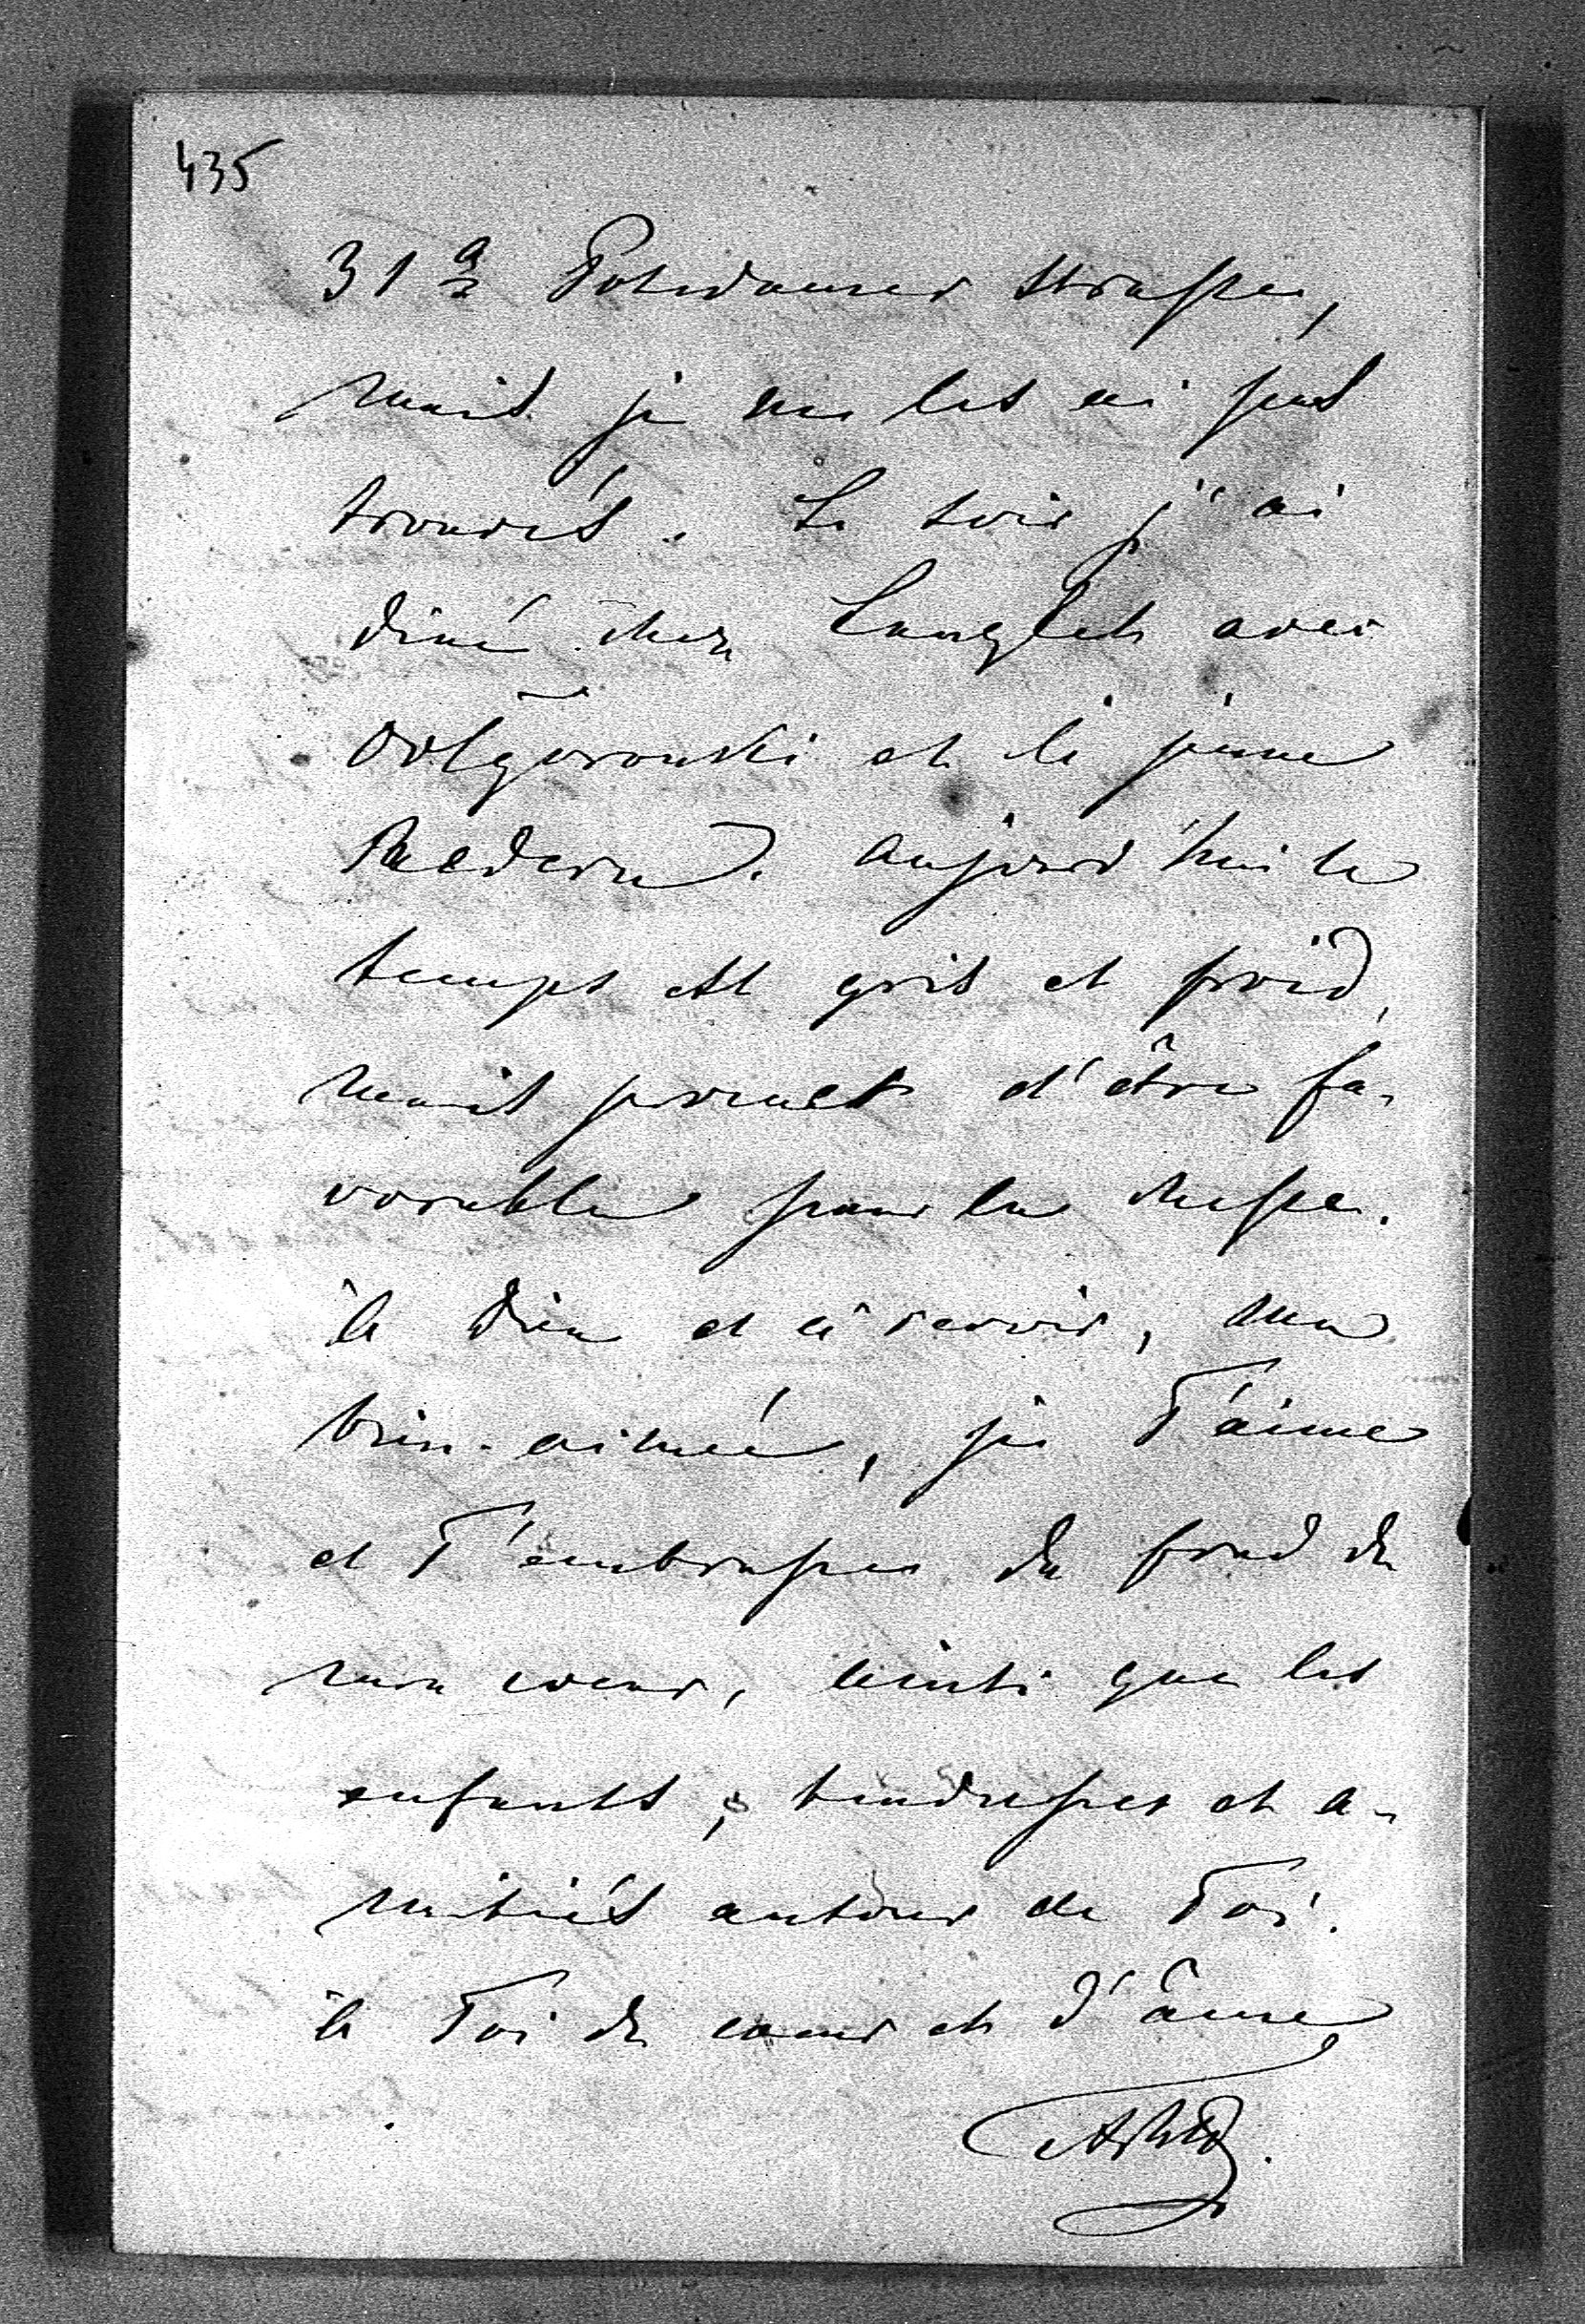 435
31 a Potsdamer Strasse,
mais je ne les ai pas
trouvés. Le soir j'ai
diné chez Langlet avec
Dolgorouki et le jeune
Redern. Aujourd'hui le
temps est gris et froid,
mais promet d'être fa-
vorable pour la chasse.
à Dieu et à revoir, ma
bien-aimée, je T'aime
et T'embrasse du fond de
mon coeur, ainsi que les
enfants; tendresses et a-
mitiés autour de Toi.
à Toi de coeur et d'âme